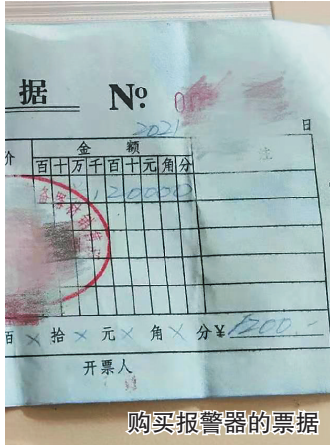 据 № 0
2021 日
价 金额 注
百十万千百十元角分
120000
百 × 拾 × 元 × 角 × 分 ¥ 1200.-
开票人
购买报警器的票据